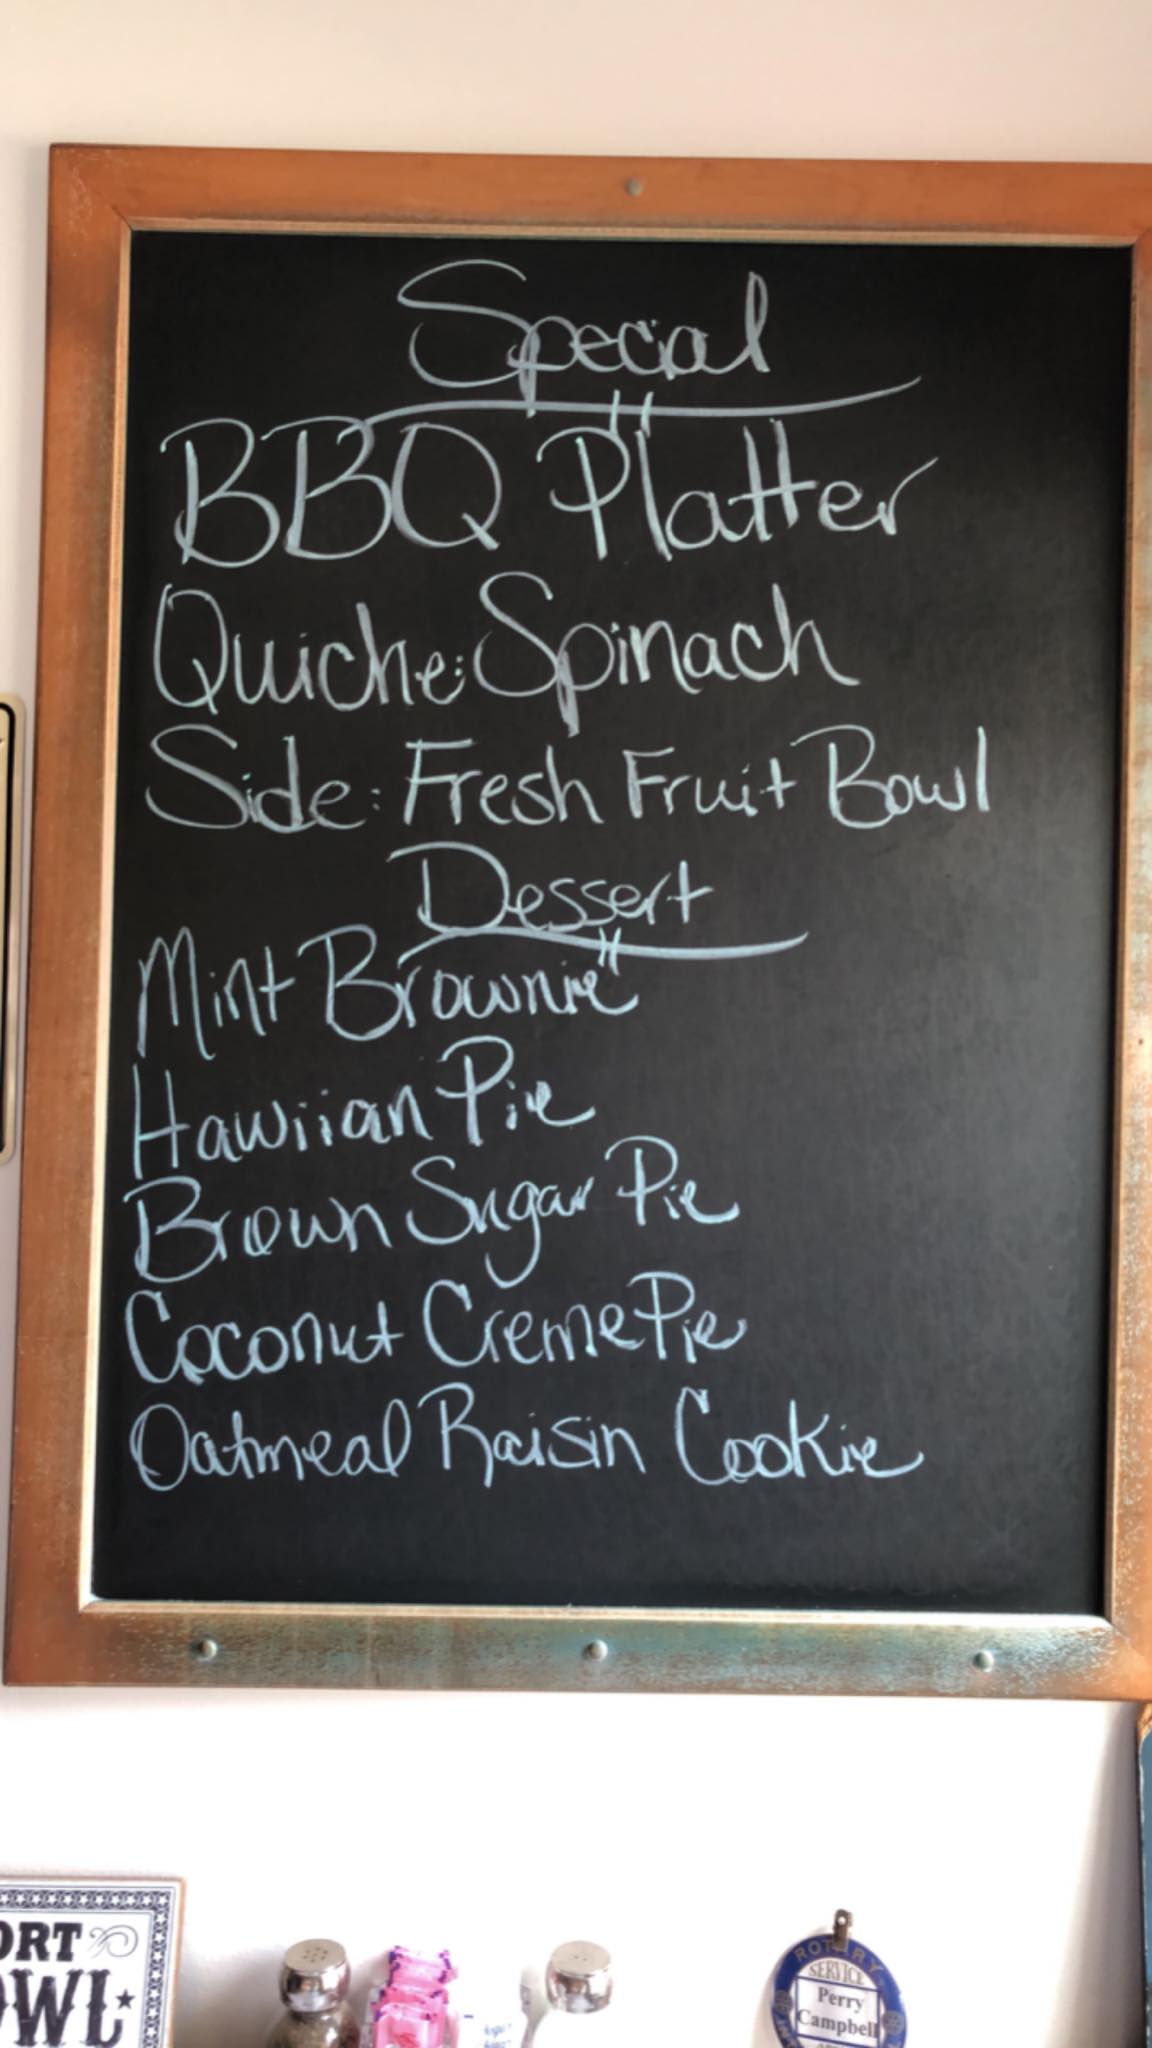 Special
BBQ Platter
Quiche: Spinach
Side: Fresh Fruit Bowl
Dessert
Mint Brownie
Hawiian Pie
Brown Sugar Pie
Coconut Creme Pie
Oatmeal Raisin Cookie
ORT
OWL
ROTARY
SERVICE
Perry
Campbell